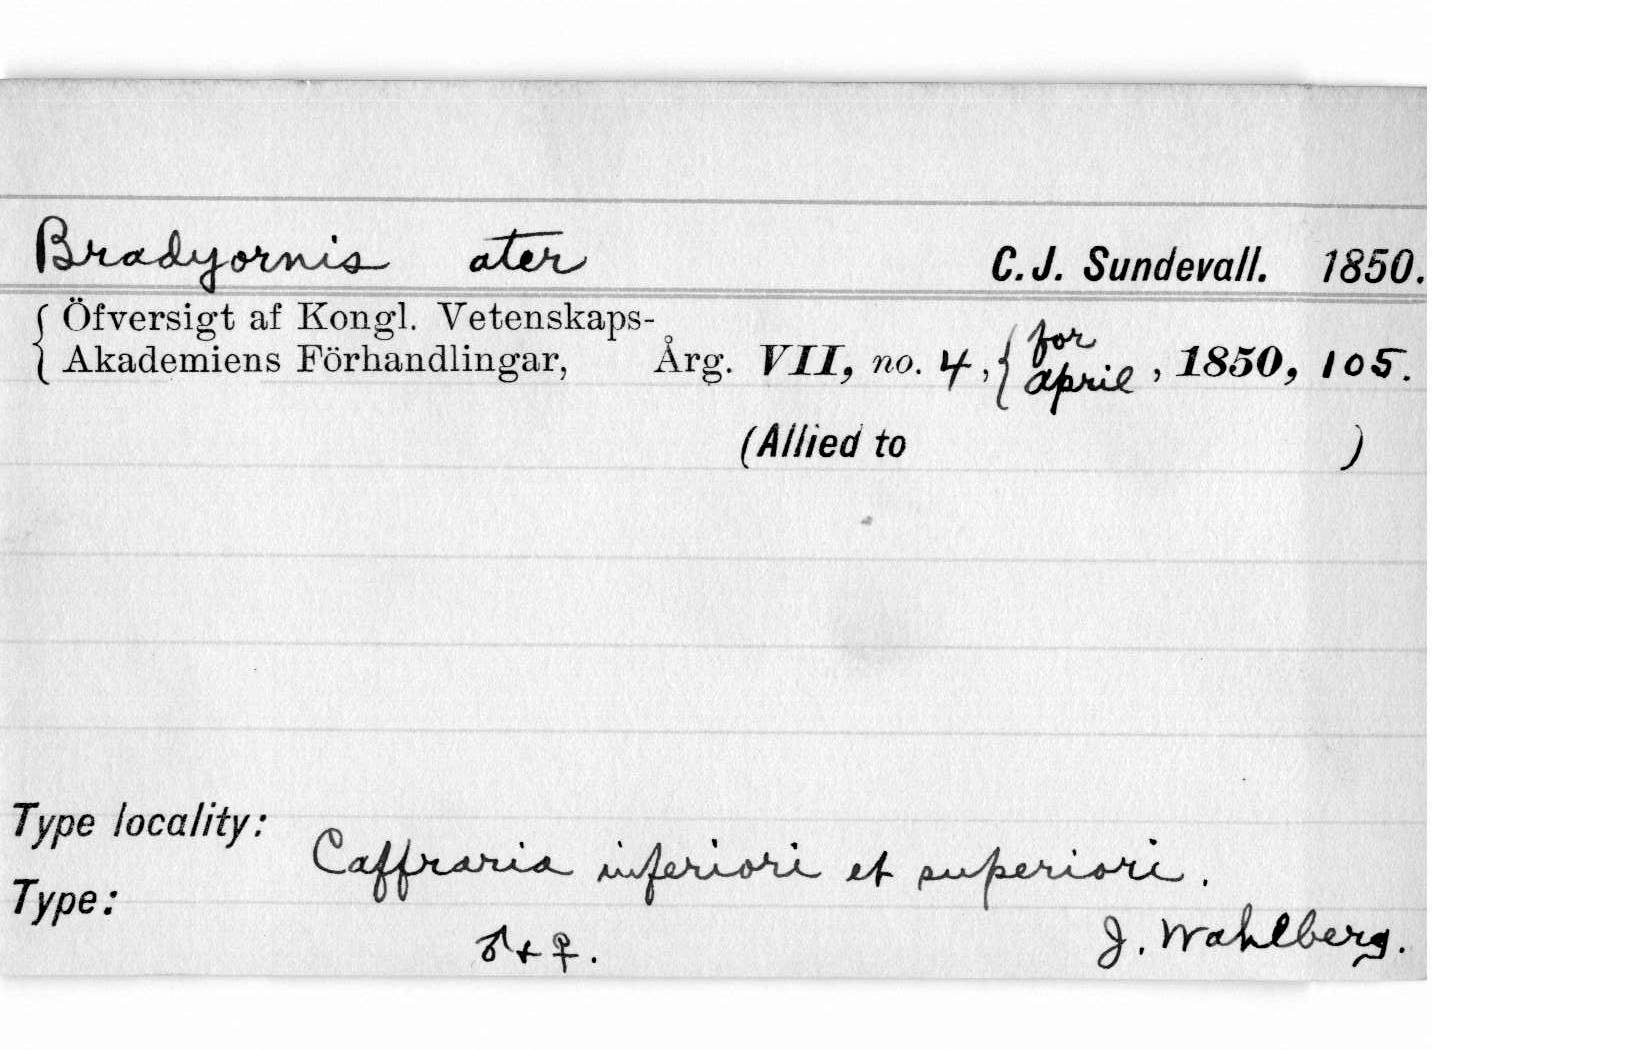 Bradyornis ater C. J. Sundevall. 1850.
{ Öfversigt af Kongl. Vetenskaps-
Akademiens Förhandlingar, Årg. VII, no. 4, { for april, 1850, 105.
(Allied to )
Type locality:
Caffraria inferiori et superiori.
Type:
♂ + ♀. J. Wahlberg.